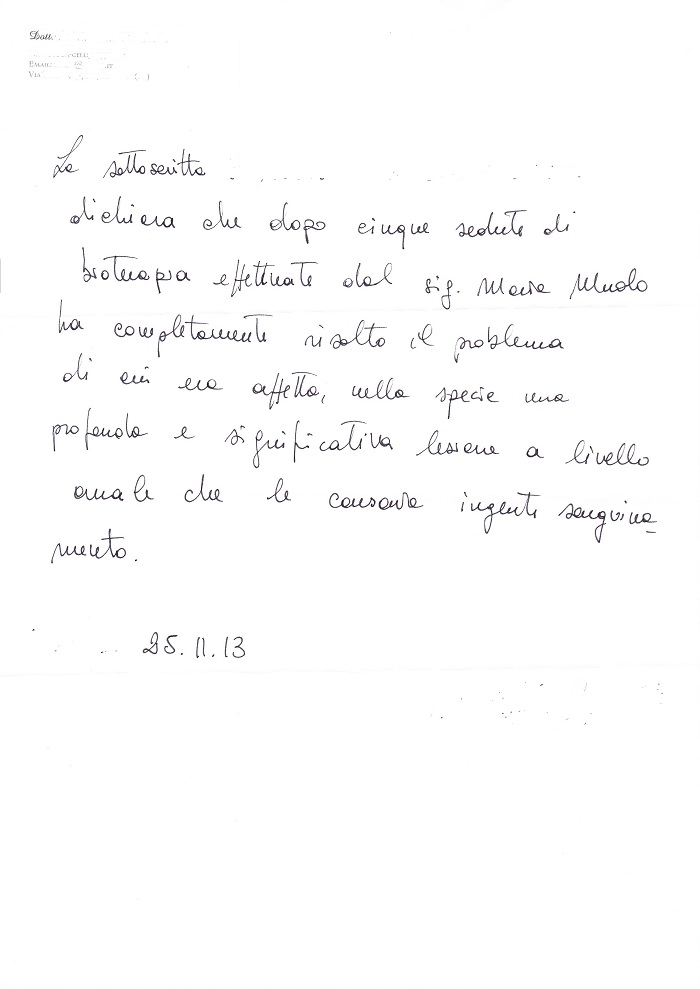 Dott.
EMAIL: .IT
VIA
La sottoscritta
dichiara che dopo cinque sedute di
bioterapia effettuate dal sig. Mario Muolo
ha completamente risolto il problema
di cui era affetta, nella specie una
profonda e significativa lesione a livello
anale che le causava ingente sanguina_
mento.
25.11.13